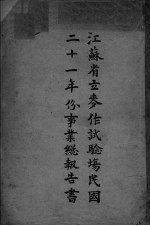 江蘇省立麥作試驗場民國
二十一年份事業總報告書